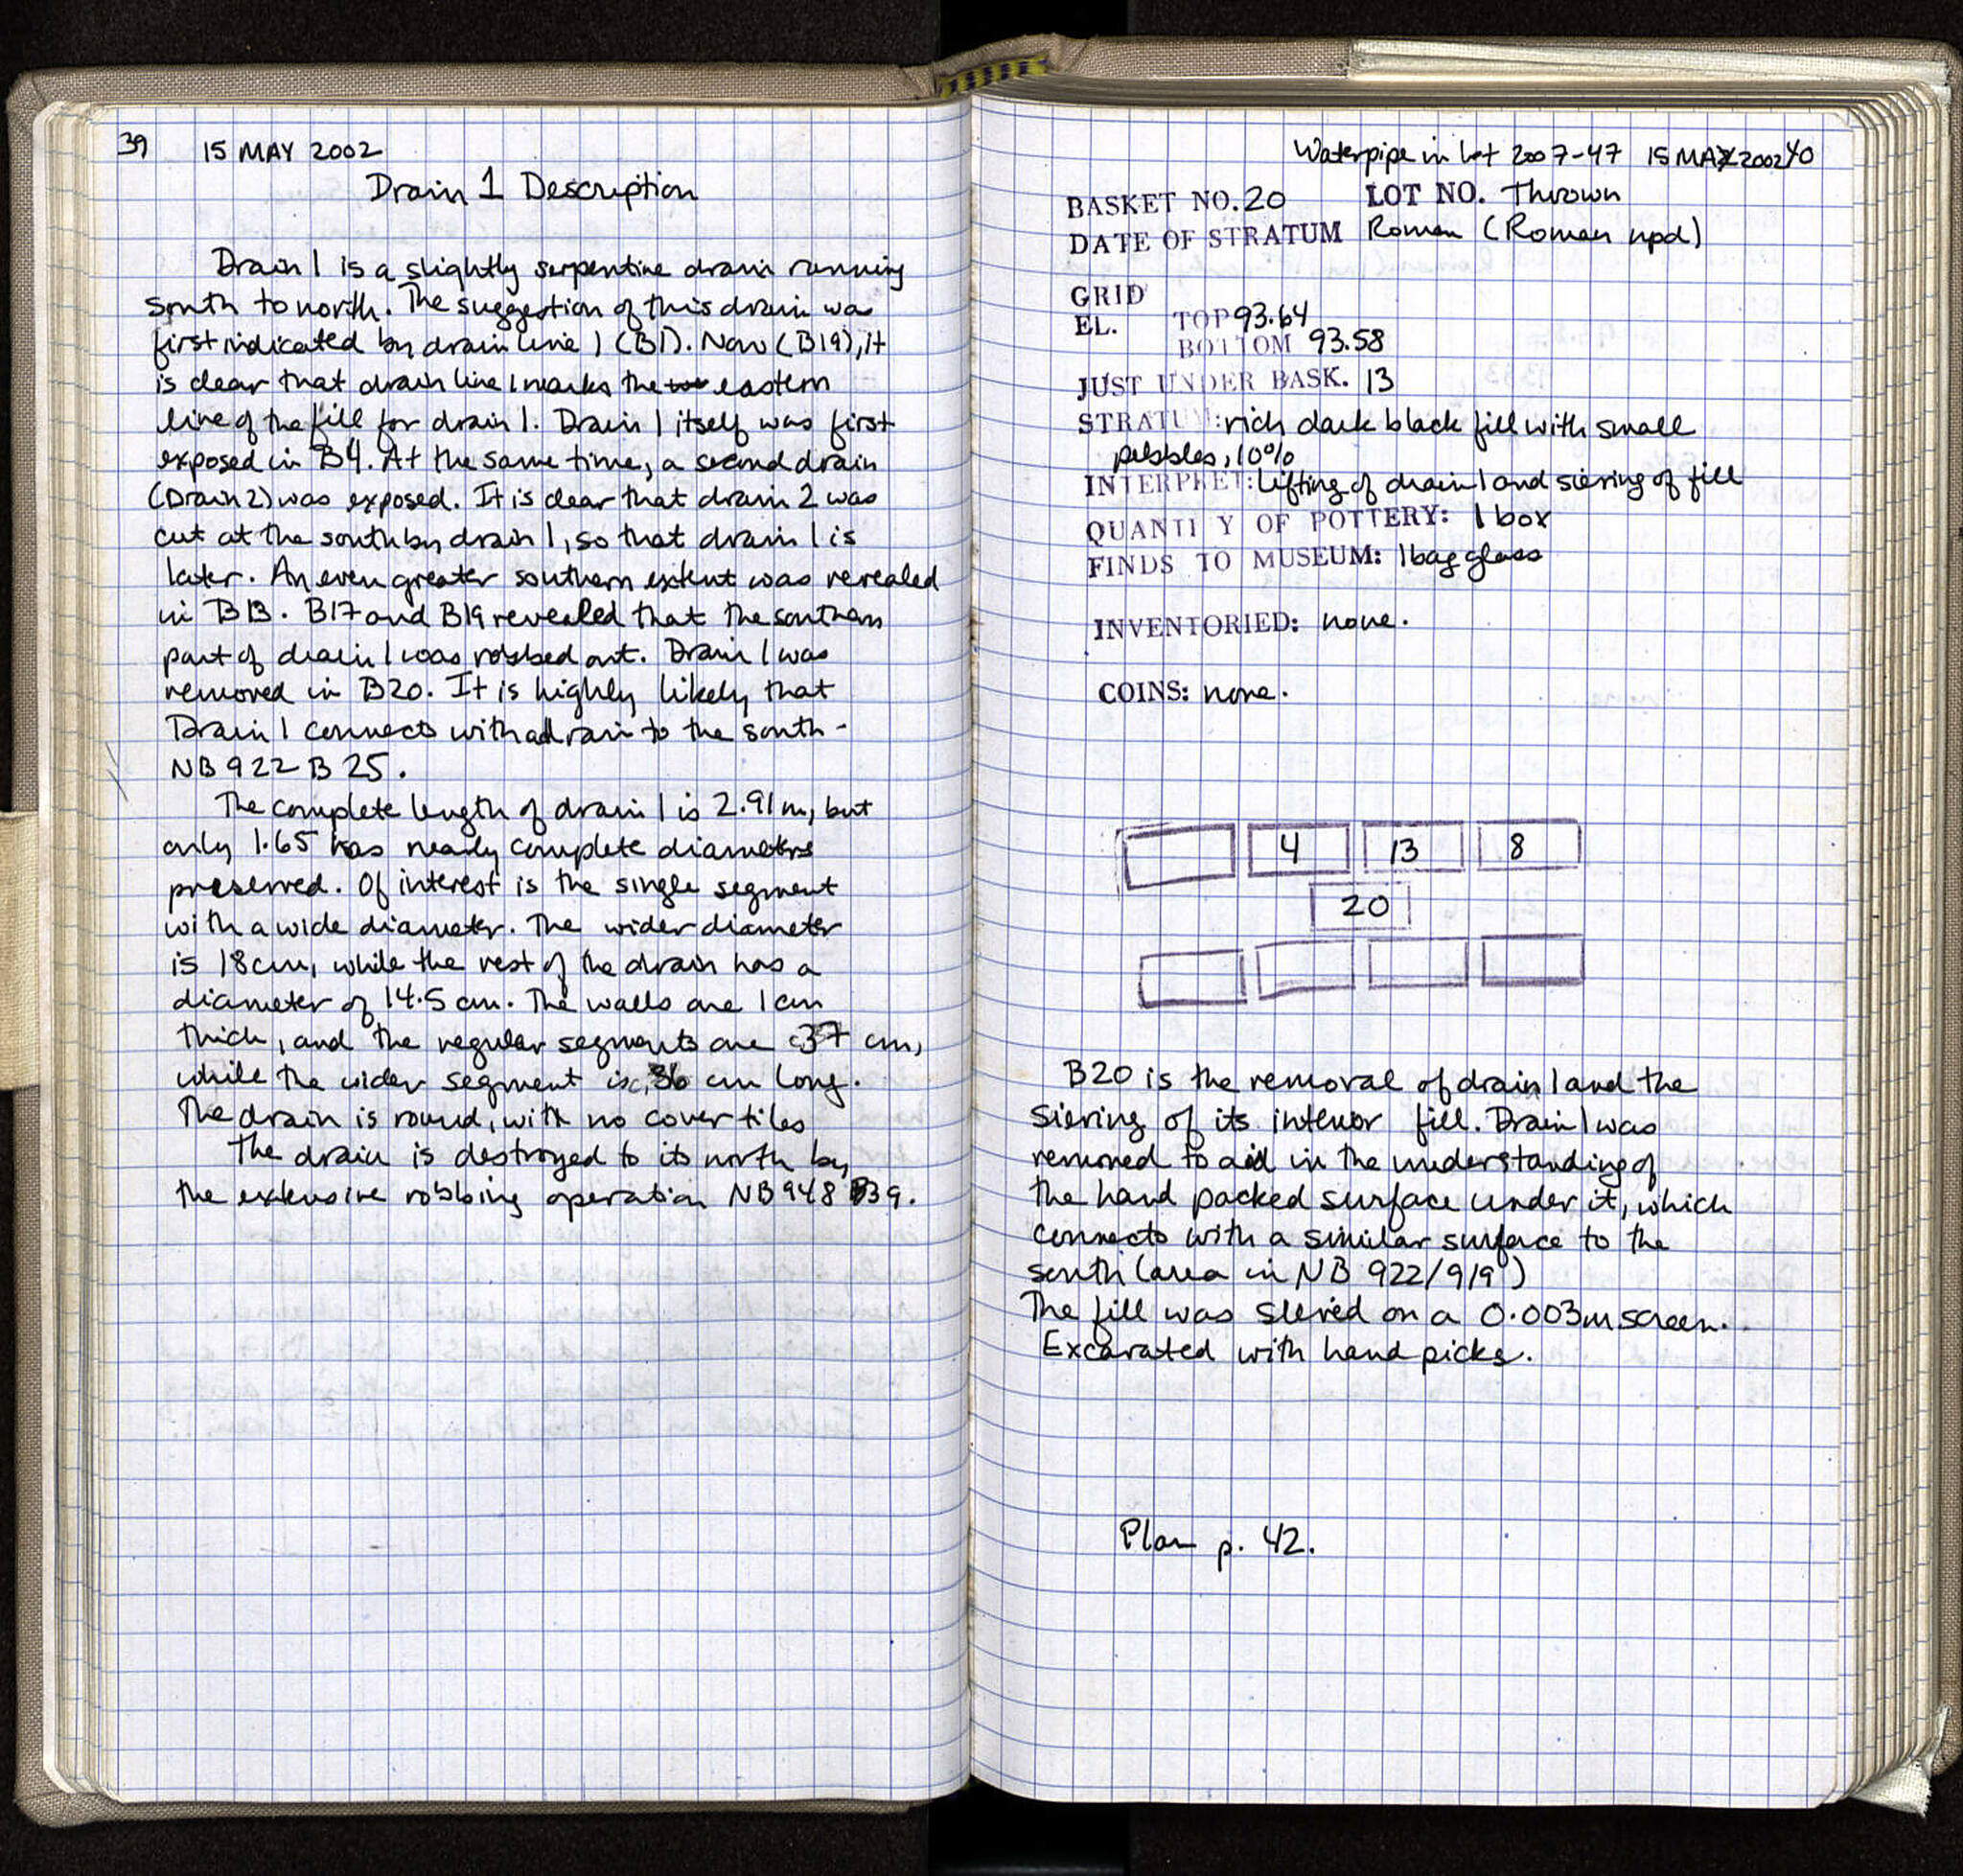 39 15 MAY 2002
Drain 1 Description
Drain 1 is a slightly serpentine drain running
south to north. The suggestion of this drain wa
first indicated by drain line 1 (B1). Now (B19), it
is clear that drain line 1 marks the eastern
line of the fill for drain 1. Drain 1 itself was first
exposed in B4. At the same time, a second drain
(Drain 2) was exposed. It is clear that drain 2 was
cut at the south by drain 1, so that drain 1 is
later. An even greater southern extent was revealed
in B13. B17 and B19 revealed that the southern
part of drain 1 was robbed out. Drain 1 was
removed in B20. It is highly likely that
Drain 1 connects with a drain to the south -
NB 922 B 25.
The complete length of drain 1 is 2.91 m, but
only 1.65 has nearly complete diameters
preserved. Of interest is the single segment
with a wide diameter. The wider diameter
is 18cm, while the rest of the drain has a
diameter of 14.5 cm. The walls are 1 cm
thick, and the regular segments are c37 cm,
while the wider segment is c.36 cm long.
The drain is round, with no cover tiles
The drain is destroyed to its north by
the extensive robbing operation NB 948 B39.
Waterpipe in Lot 2007-47 15 MAY 2002 40
BASKET NO. 20 LOT NO. Thrown
DATE OF STRATUM Roman (Roman npd)
GRID
EL. TOP 93.64
BOTTOM 93.58
JUST UNDER BASK. 13
STRATUM: rich dark black fill with small
pebbles, 10%
INTERPRET: Lifting of drain 1 and sieving of fill
QUANTITY OF POTTERY: 1 box
FINDS TO MUSEUM: 1 bag glass
INVENTORIED: none.
COINS: none.
4 13 8
20
B20 is the removal of drain 1 and the
sieving of its interior fill. Drain 1 was
removed to aid in the understanding of
the hard packed surface under it, which
connects with a similar surface to the
south (area in NB 922/919)
The fill was sieved on a 0.003m screen.
Excavated with hand picks.
Plan p. 42.